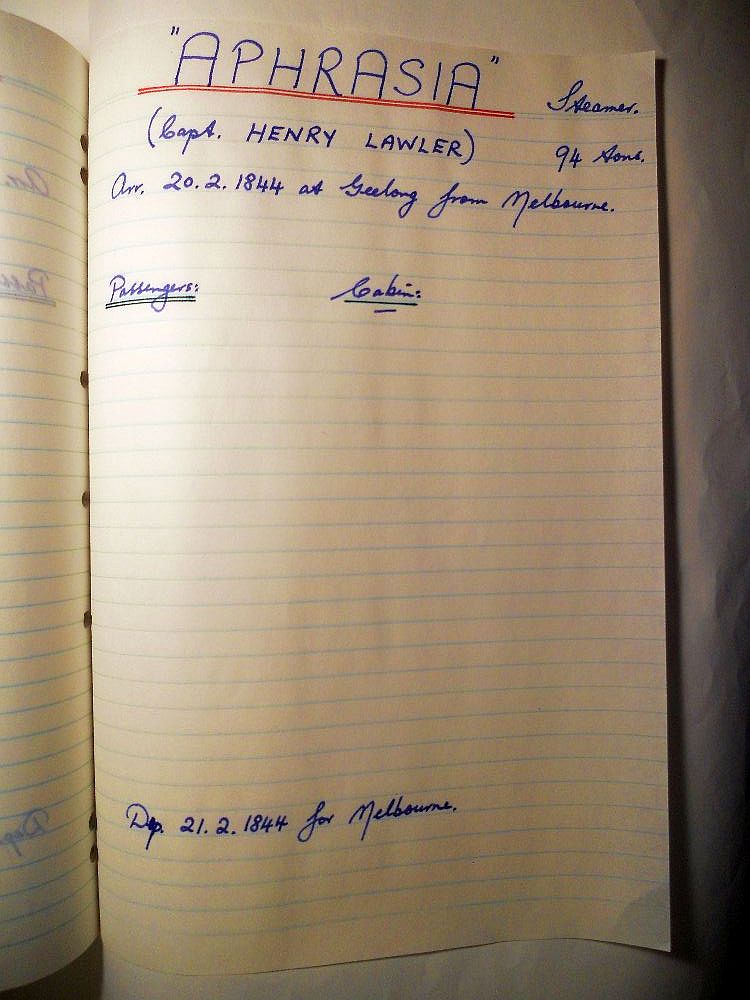 "APHRASIA" Steamer.
(Capt. HENRY LAWLER) 94 tons.
Arr. 20.2.1844 at Geelong from Melbourne.
Passengers: Cabin:
Dep. 21.2.1844 for Melbourne.